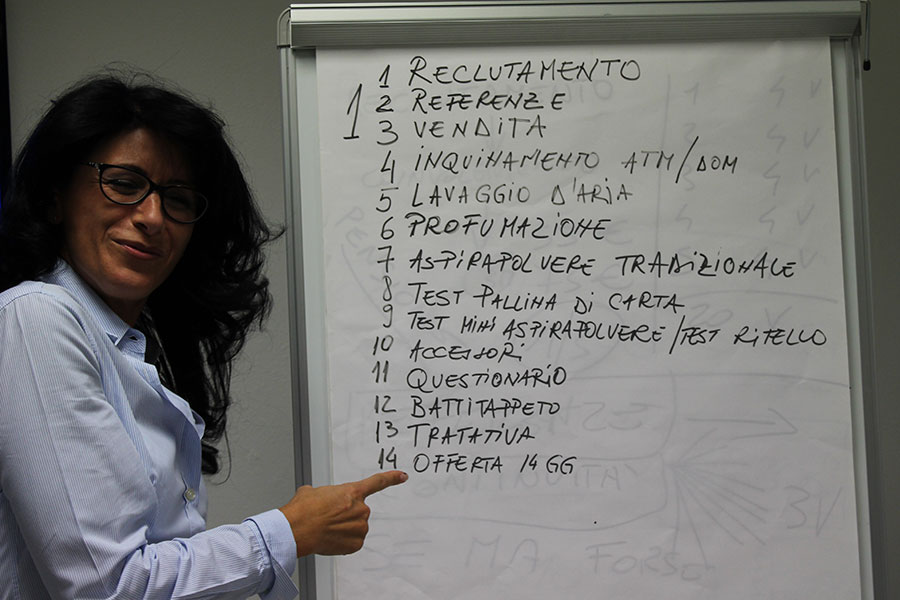 1 RECLUTAMENTO
1 2 REFERENZE
3 VENDITA
4 INQUINAMENTO ATM/DOM
5 LAVAGGIO D'ARIA
6 PROFUMAZIONE
7 ASPIRAPOLVERE TRADIZIONALE
8 TEST PALLINA DI CARTA
9 TEST MINI ASPIRAPOLVERE/TEST RITELLO
10 ACCESSORI
11 QUESTIONARIO
12 BATTITAPPETO
13 TRATATIVA
14 OFFERTA 14 GG
CONTINUITA'
3V
SE MA FORSE